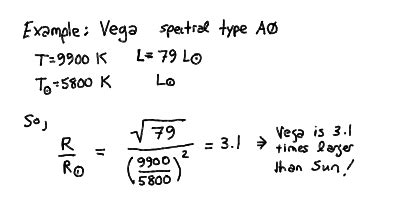 Example: Vega spectral type AØ
T=9900 K L= 79 L⊙
T⊙=5800 K L⊙
So,
R/R⊙ = √79 / (9900/5800)² = 3.1 ⇒ Vega is 3.1
times larger
than Sun!